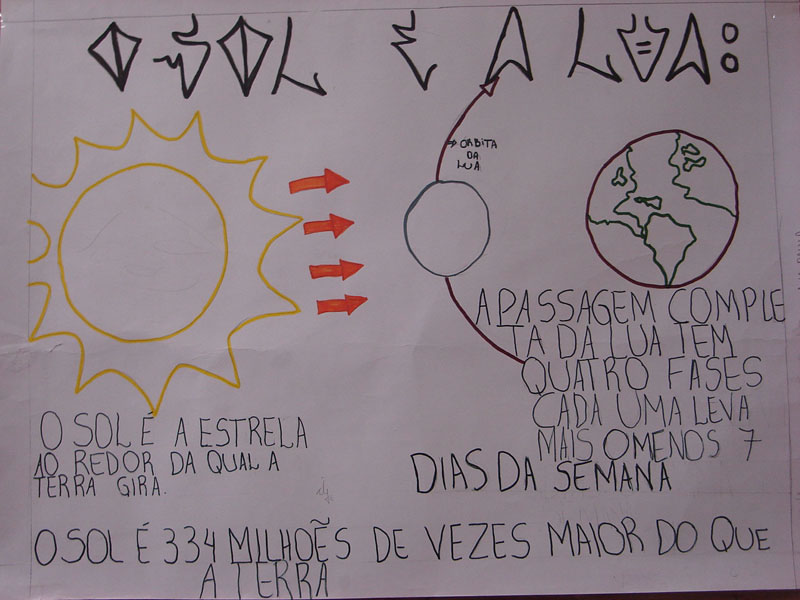 O SOL E A LUA:
ORBITA
DA
LUA
A PASSAGEM COMPLE
TA DA LUA TEM
QUATRO FASES
CADA UMA LEVA
MAIS OMENOS 7
DIAS DA SEMANA
O SOL É A ESTRELA
AO REDOR DA QUAL A
TERRA GIRA.
O SOL É 334 MILHOẼS DE VEZES MAIOR DO QUE
A TERRA